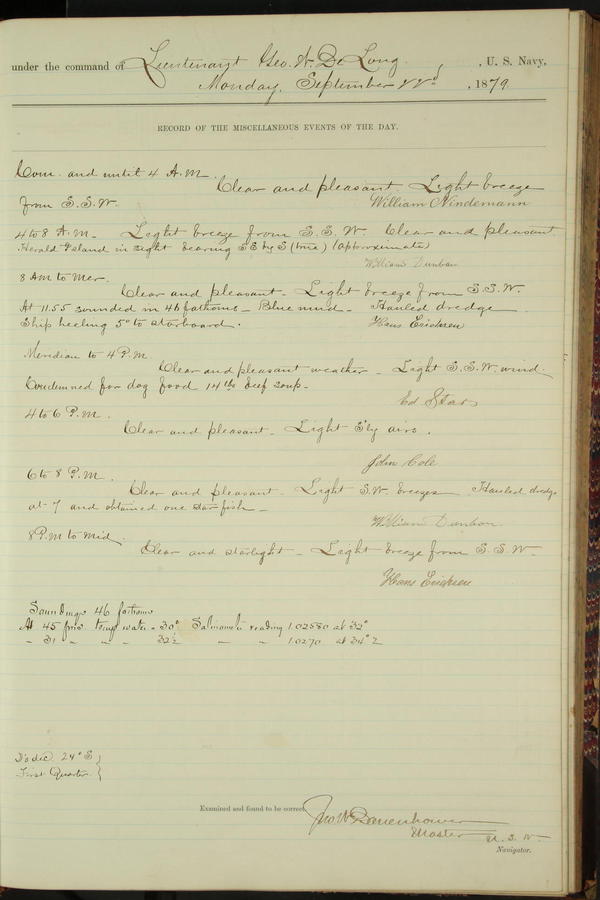 under the command of Lieutenant Geo. W. De Long, U. S. Navy,
Monday, September 22d, 1879
RECORD OF THE MISCELLANEOUS EVENTS OF THE DAY.
Com. and until 4 A.M.
Clear and pleasant. Light breeze
from S.S.W. William Nindemann
4 to 8 A.M. Light breeze from S.S.W. Clear and pleasant.
Herald Island in sight bearing SE by S (true) (approximate)
William Dunbar
8 AM to Mer.
Clear and pleasant. Light breeze from S.S.W.
At 11.55 sounded in 46 fathoms - Blue mud. Hauled dredge.
Ship heeling 5° to starboard. Hans Erichsen
Meridian to 4 P.M.
Clear and pleasant weather - Light S.S.W. wind.
Condemned for dog food 14 lbs beef soup.
Ed Starr
4 to 6 P.M.
Clear and pleasant. Light S'ly airs.
John Cole
6 to 8 P.M.
Clear and pleasant. Light S.W. breezes. Hauled dredge
at 7 and obtained one star fish.
William Dunbar
8 P.M to Mid.
Clear and starlight - Light breeze from S.S.W.
Hans Erichsen
Soundings 46 fathoms
At 45 fms. temp water - 30° Salinometer reading 1.02580 at 32°
" 31 " " " 32½ " " 1.0270 at 34° 2
D's dec. 24° S }
First Quarter }
Examined and found to be correct.
Jno W Danenhower
Master U. S. N.
Navigator.